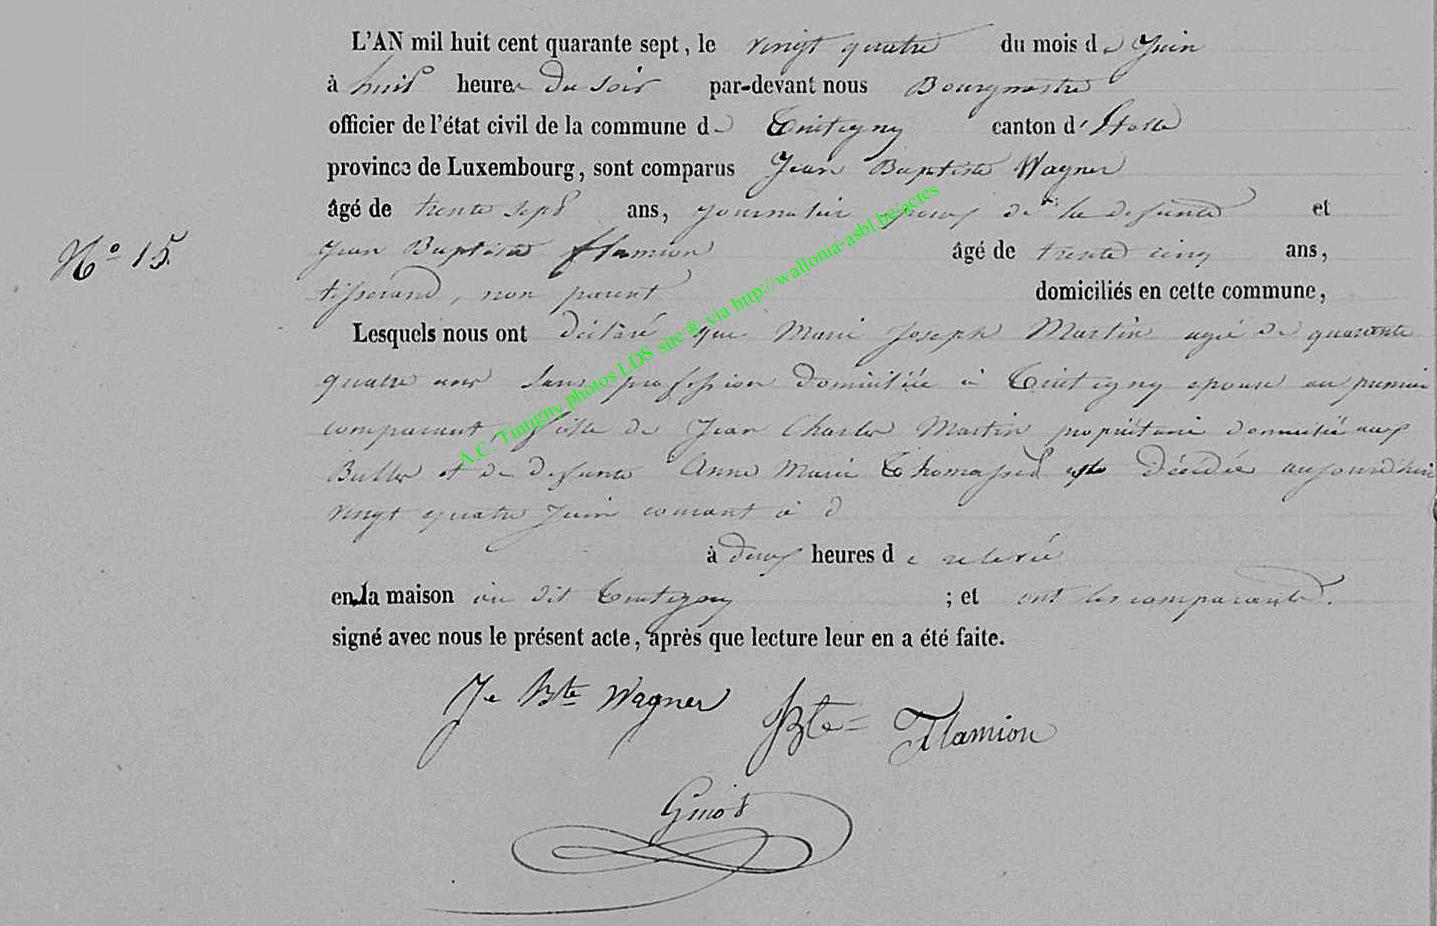 L'AN mil huit cent quarante sept, le vingt quatre du mois de Juin
à huit heures du soir par-devant nous Bourgmestre
officier de l'état civil de la commune de Tintigny canton d'Etalle
province de Luxembourg, sont comparus Jean Baptiste Wagner
âgé de trente sept ans, journalier epoux de la defunte et
N° 15.
Jean Baptiste Flamion âgé de trente cinq ans,
tisserand, non parent domiciliés en cette commune,
Lesquels nous ont déclaré que Marie Joseph Martin agée de quarante
quatre ans sans profession domiciliée à Tintigny epouse au premier
comparant, fille de Jean Charles Martin propriétaire domicilié aux
Bulles et de defunte Anne Marie Thomassed est Décédée aujourd'hui
vingt quatre Juin courant à d
à deux heures de relevée
en la maison au dit Tintigny ; et ont les comparants.
signé avec nous le présent acte, après que lecture leur en a été faite.
Je Bte Wagner Bte Flamion
Guiot
A.C. Tintigny photos LDS site ® via http://wallonia-asbl.be/actes